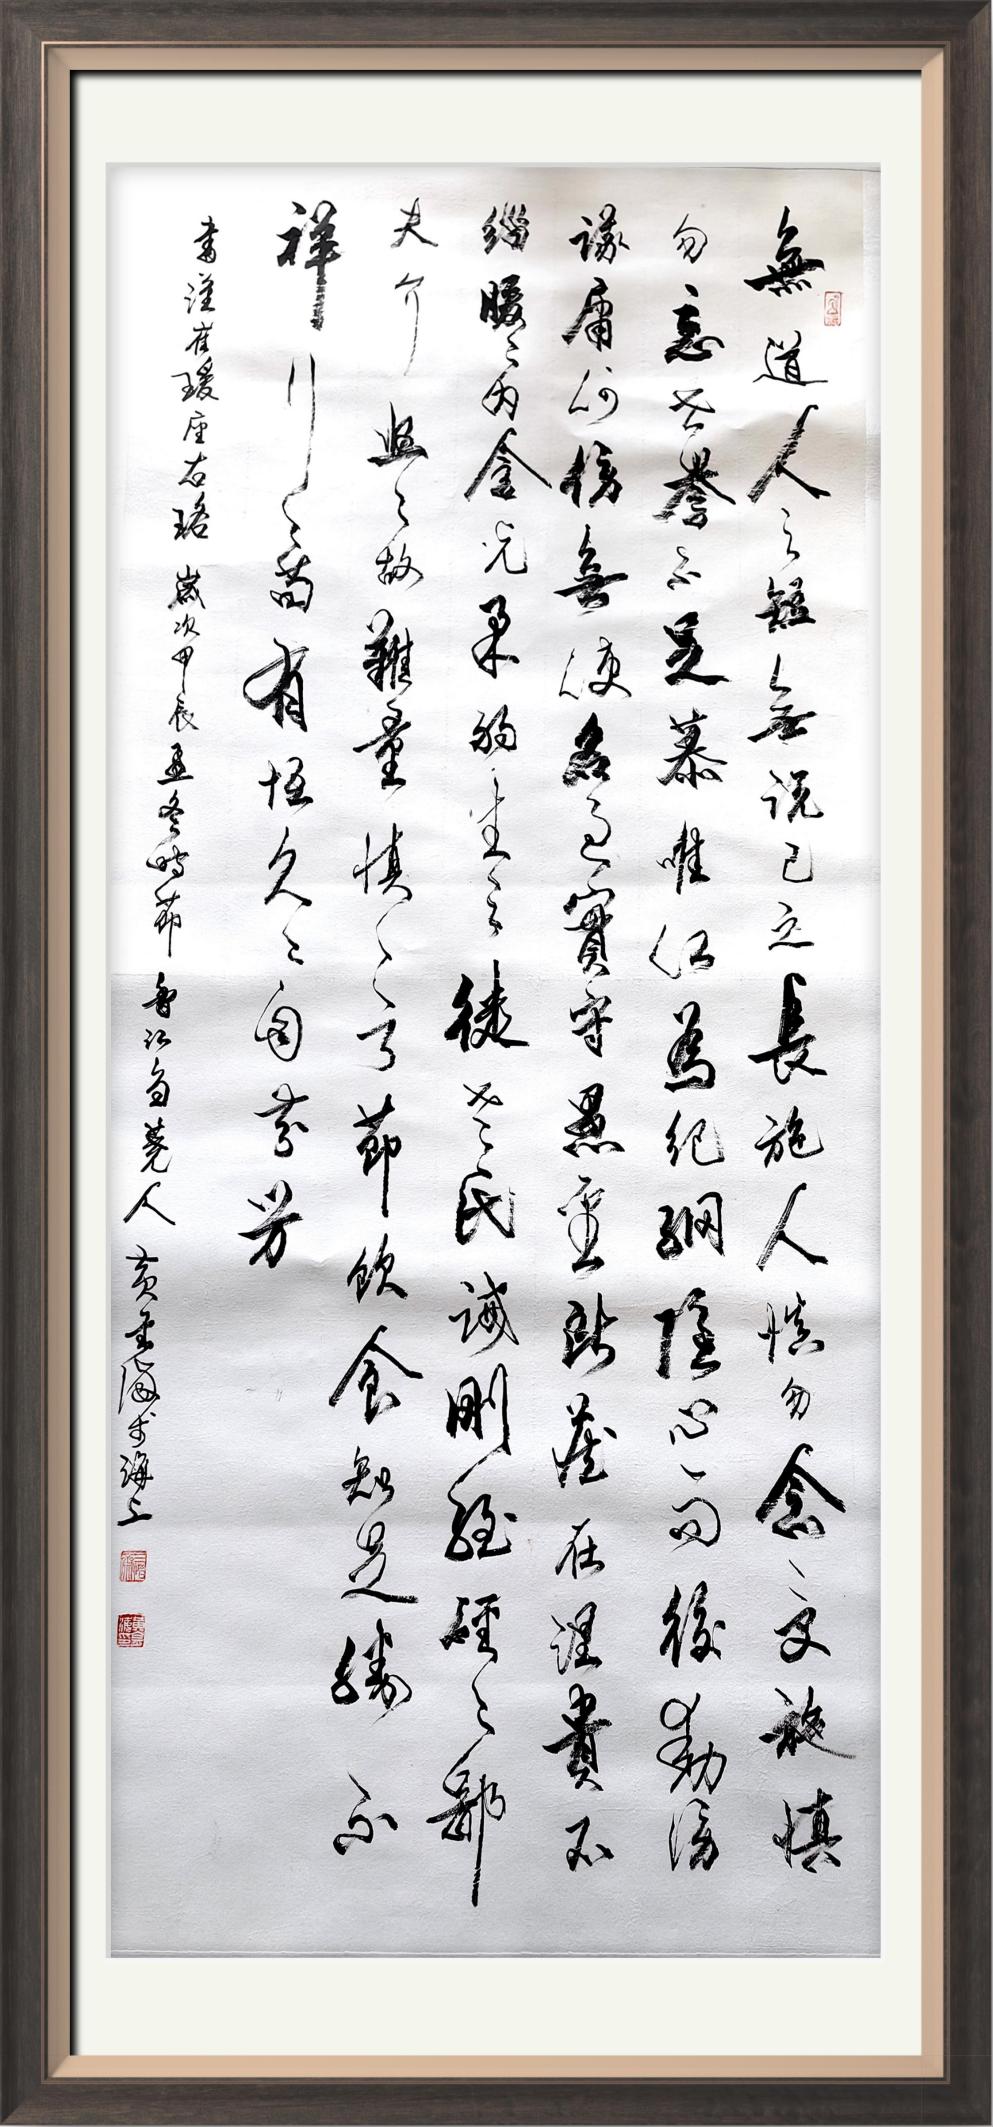 無道人之短無説己之長施人慎勿念受施慎
勿忘世譽不足慕唯仁為紀綱隱心而後動謗
議庸何傷無使名過實守愚聖所藏在涅貴不
緇曖々内含光柔弱生之徒老氏誡剛強硜々鄙
夫介悠々故難量慎言節飲食知足勝不
祥行之苟有恆久々自芬芳
書漢崔瑗座右銘 歲次甲辰孟冬時節 香江芻蕘人 黄海於海上